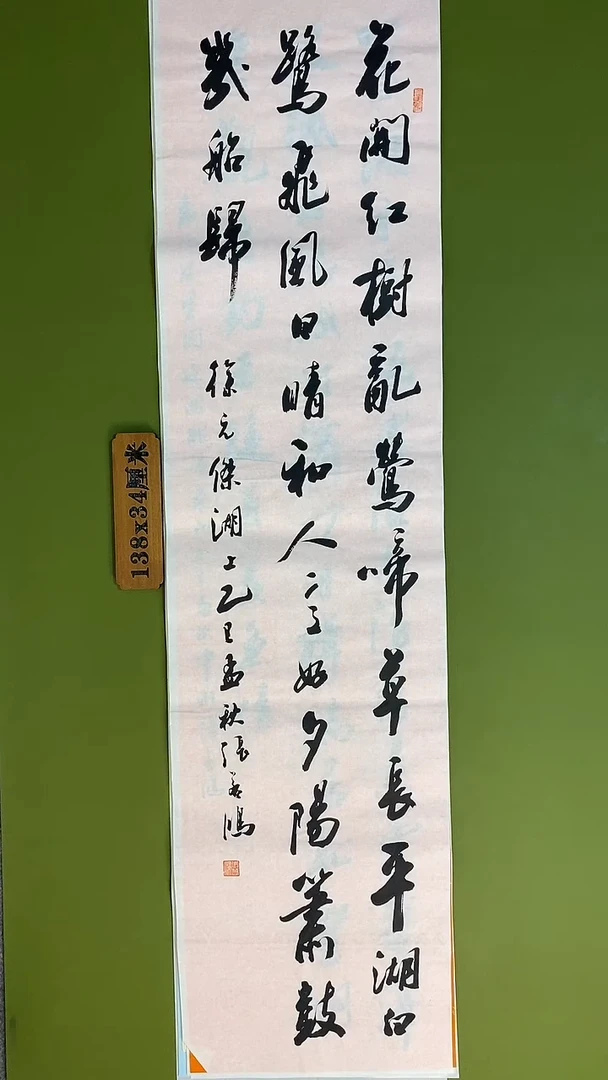 花開紅樹亂鶯啼草長平湖白
鷺飛風日晴和人意好夕陽簫鼓
幾船歸 徐元傑湖上乙巳孟秋張
138x34厘米